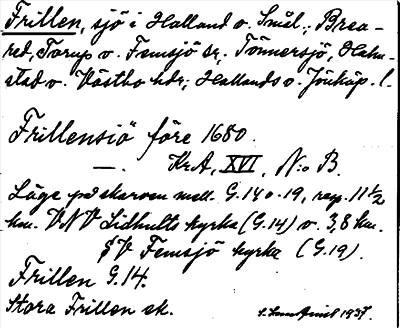 Frillen, sjö i Halland o. Smål.; Brea-
red, Torup o. Femsjö sr, Tönnersjö, Halm-
stad o. Västbo hdr; Hallands o. Jönköp. l.
Frillensiö före 1680.
—. Kr.A, XVI, N:o B.
Läge på skarven mell. G.14 o. 19, resp. 11 1/2
km. VNV Lidhults kyrka (G.14) o. 3,8 km.
V Femsjö kyrka (G.19).
Frillen G.14.
Stora Frillen ek.
1937.